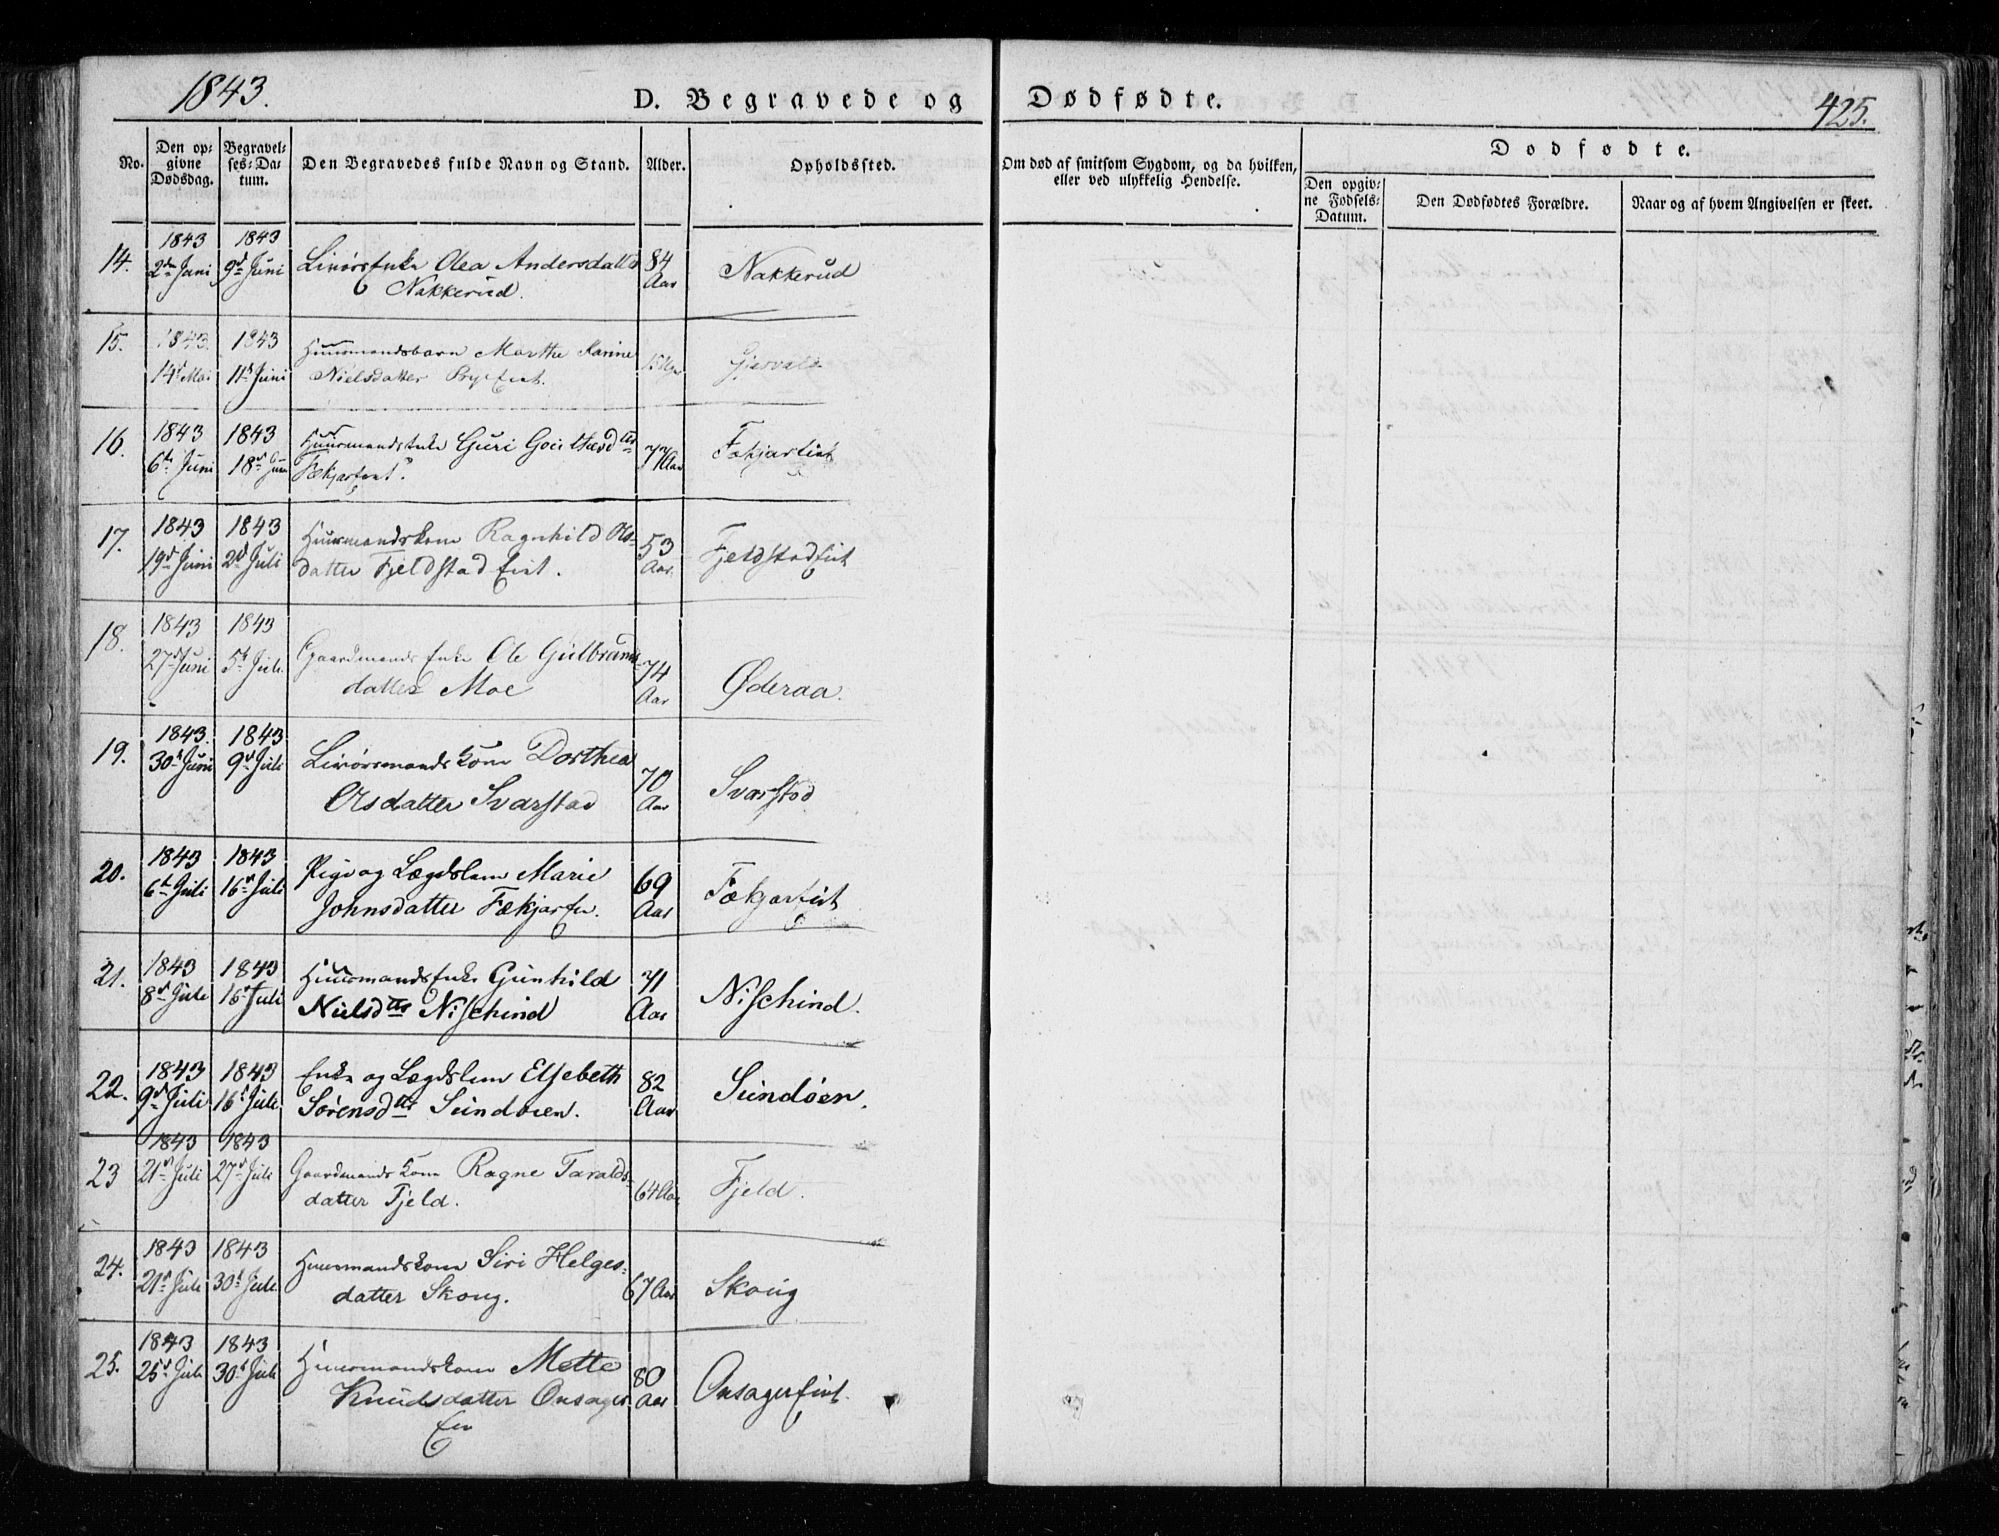 1843.
D. Begravede og Dødfødte.
425.
No.
Den op-
givne
Dødsdag.
Begravel-
ses-Da-
tum.
Den Begravedes fulde Navn og Stand.
Alder.
Opholdssted.
Om død af smitsom Sygdom, og da hvilken,
eller ved ulykkelig Hendelse.
Dødfødte.
Den opgiv-
ne Fødsels-
Datum.
Den Dødfødtes Forældre.
Naar og af hvem Angivelsen er skeet.
14. 1843 2den Juni 1843 9d Juni Enke Olea Andersdatter 84 Aar Nakkerud
Nakkerud.
15. 1843 14d Mai 1843 11d Juni Huusmandsbarn Marthe Karine
Nielsdatter
16. 1843 6te Juni 1843 18d Juni Huusmandsenke Guri 77 Aar
17. 1843 19d Juni 1843 2d Juli Huusmandskone Ragnhild Ols- 53 Aar Fjeldstadeiet
datter Fjeldstad Eiet.
18. 1843 27d Juni 1843 5te Juli Gaardmands Enke Gulbrands- 74 Aar Øderaa.
datter Moe
19. 1843 30d Juni 1843 9d Juli Dorthea 70 Aar Svarstad
Olsdatter Svarstad
20. 1843 6te Juli 1843 16d Juli Pige og Lægdslem Marie 69 Aar Fækjareiet
Johnsdatter Fækjar Ei.
21. 1843 8d Juli 1843 16d Juli Huusmands Enke Gunhild 71 Aar Nischind.
Nielsdtr Nischind
22. 1843 9d Juli 1843 16d Juli Enke og Lægdslem Elsebeth 82 Aar Sundøen.
Sørensdtr Sundøen.
23 1843 21d Juli 1843 27d Juli Gaardmands Kone Ragne Taralds- 64 Aar Fjeld.
datter Fjeld.
24. 1843 21d Juli 1843 30d Juli Huusmandskone Siri Helges- 67 Aar Skoug
datter Skoug.
25. 1843 25d Juli 1843 30d Juli Huusmandskone Mette 80 Aar Onsagereiet.
Knudsdatter Onsager
Ei